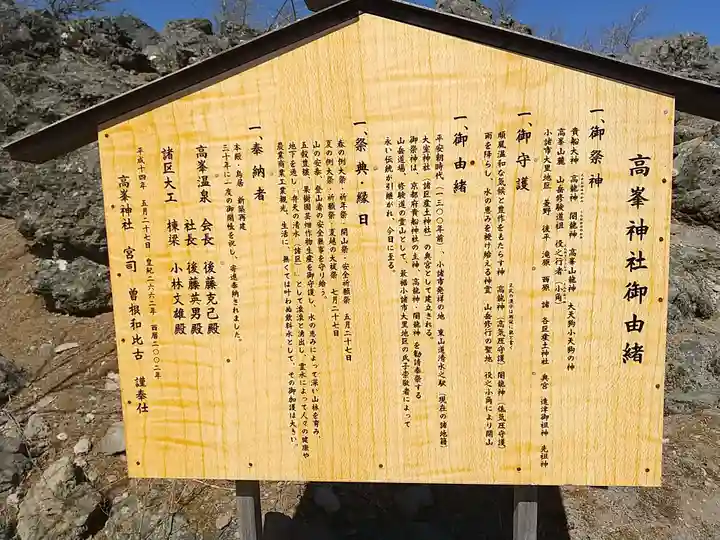 高峯神社御由緒
一、御祭神
貴船大神 高龗神 闇龗神 高峯山龍神 大天狗小天狗の神
高峯山麓 山岳修験道祖 役之行者(小角)
小諸市大里地区 菱野 後平 滝原 西原 諸 各区産土神社 奥宮 遠津御祖神 先祖神
一、御守護
順風温和な気候と豊作をもたらす神 高龗神(高気圧守護)闇龗神(低気圧守護)
雨を降らし、水の恵みを授け給える神霊 山岳修行の聖地 役之小角により開山
一、御由緒
平安朝時代(一一三〇〇年前)、小諸市発祥の地 東山道清水之駅(現在の諸地籍)
大室神社(諸区産土神社)の奥宮として建立される。
御祭神は、京都府貴船神社の主神、高龗神・闇龗神を勧請奉祭する
山岳道場、修験道の霊山として、長福小諸市大里地区の氏子崇敬者によって
永い伝統が引継がれ、今日に至る。
一、祭典・縁日
春の例大祭・祈年祭・開山祭・安全祈願祭 五月二十七日
夏の例大祭・祈願祭・夏越の大祓祭 七月二十七日
山の安泰、登山者の安全無事を守り給う。
五穀豊穣、果樹園芸畑作物生産を御守護し、水の恵みによって深い山林を育み、
地下を通し「弁天の清水(諸区)」として滾滾と湧出し、霊水によって人々の健康や
農業商工業観光、生活に、無くては叶わぬ飲料水として、その御加護は大きい。
一、奉納者
本殿・鳥居 新築再建
三十年に一度の御開帳を祝し、寄進奉納されました。
高峯温泉 会長 後藤克己殿
社長 後藤英男殿
諸区大工 棟梁 小林文雄殿
平成十四年 五月二十七日 皇紀二六六二年 西暦二〇〇二年
高峯神社 宮司 曽根和比古 謹奉仕